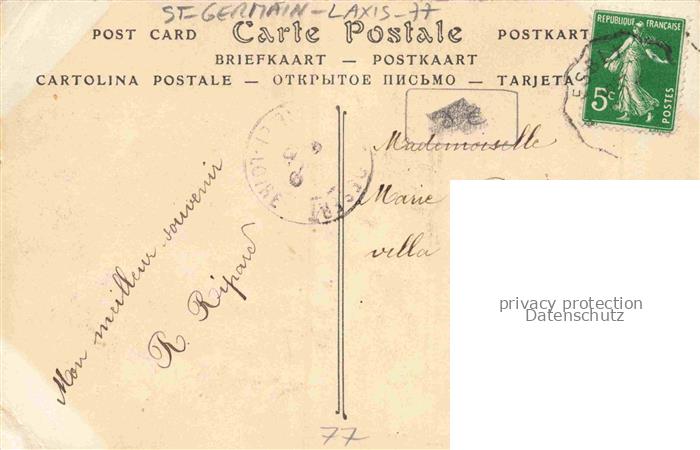 ST-GERMAIN-LAXIS-77
POST CARD Carte Postale POSTKART
BRIEFKAART — POSTKAART
CARTOLINA POSTALE — ОТКРЫТОЕ ПИСЬМО — TARJETA
REPUBLIQUE FRANÇAISE
5c
POSTES
Mademoiselle
Marie
villa
Mon meilleur souvenir
R. Ripard
privacy protection
Datenschutz
77